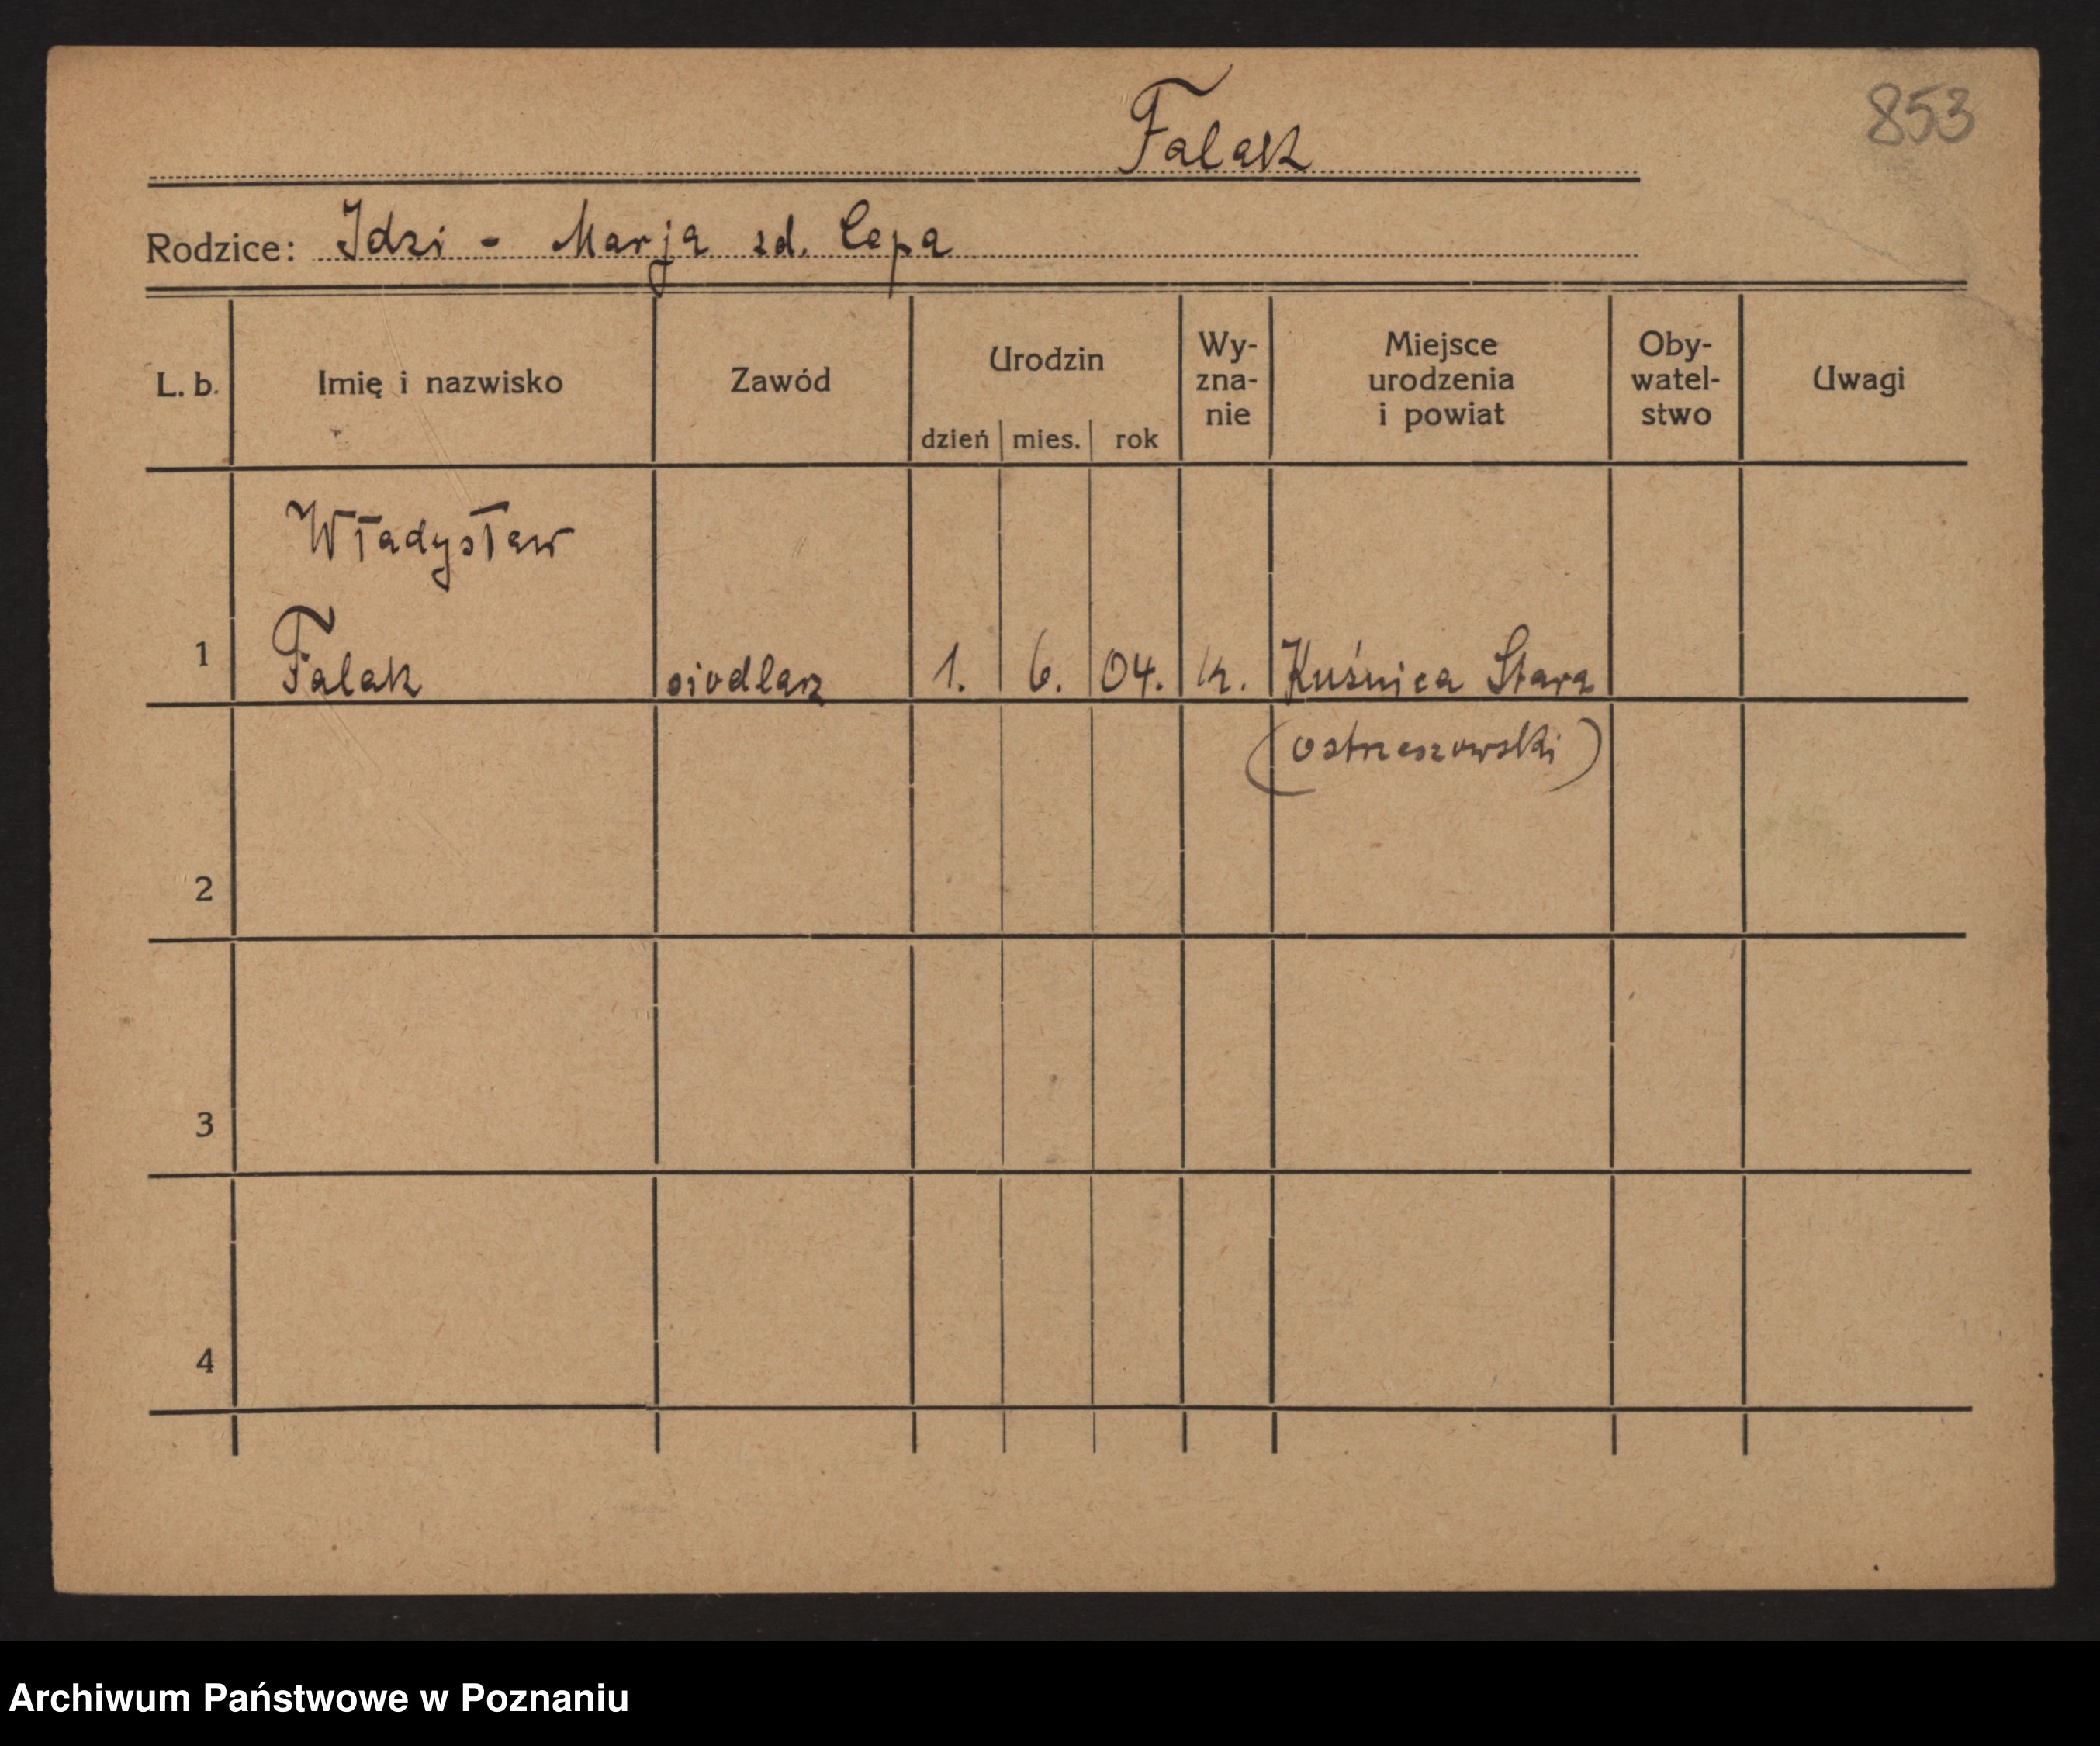 853
Falak
Rodzice: Idzi - Marja zd. Cepa
L. b. Imię i nazwisko Zawód Urodzin dzień mies. rok Wy- zna- nie Miejsce urodzenia i powiat Oby- watel- stwo Uwagi
Władysław
1 Falak siodlarz 1. 6. 04. k. Kuźnica Stara
(ostrzeszowski)
2
3
4
Archiwum Państwowe w Poznaniu